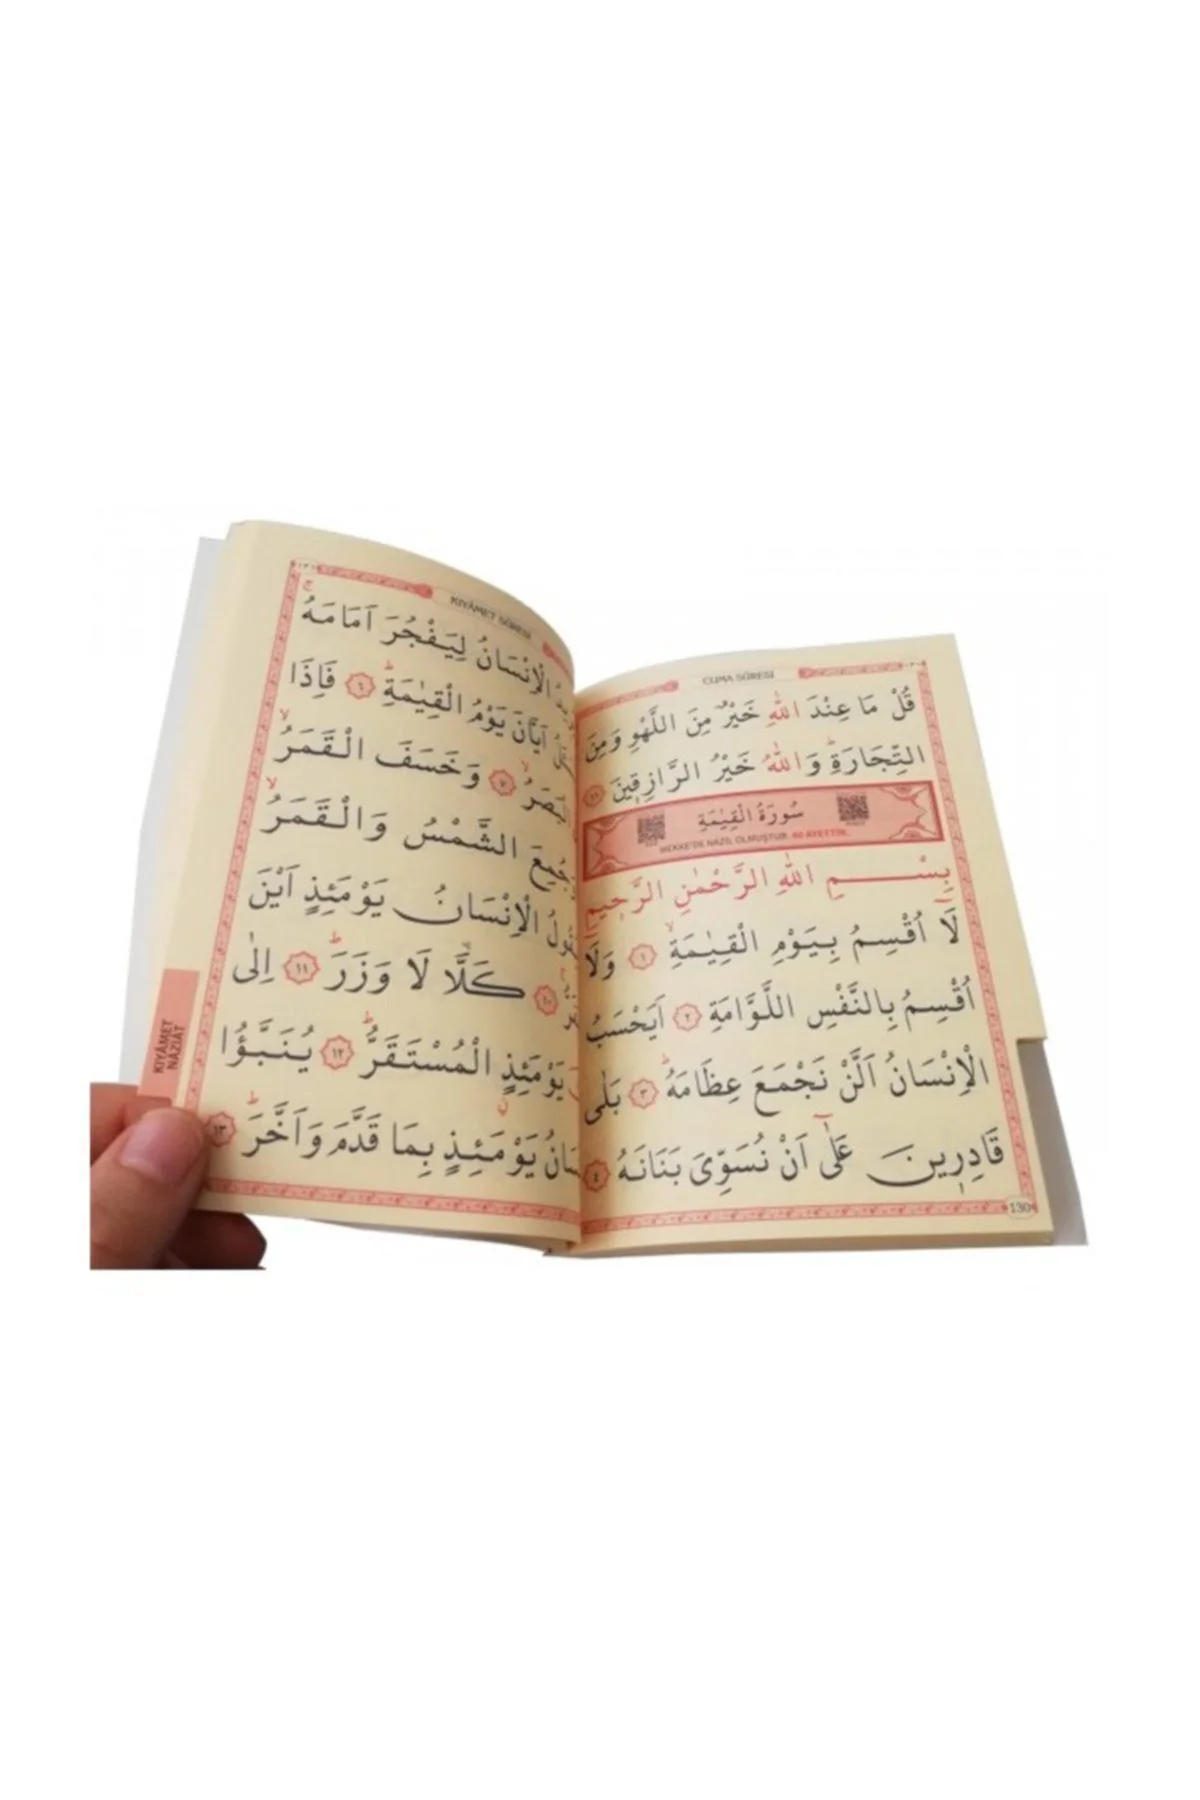 CUMA SÛRESİ
قُلْ مَا عِنْدَ اللّٰهِ خَيْرٌ مِنَ اللَّهْوِ وَمِنَ
التِّجَارَةِۜ وَاللّٰهُ خَيْرُ الرَّازِق۪ينَ ١١
سُورَةُ الْقِيٰمَةِ
MEKKE'DE NAZİL OLMUŞTUR. 40 AYETTİR.
بِسْمِ اللّٰهِ الرَّحْمٰنِ الرَّح۪يمِ
لَٓا اُقْسِمُ بِيَوْمِ الْقِيٰمَةِۙ ١ وَلَٓا
اُقْسِمُ بِالنَّفْسِ اللَّوَّامَةِ ٢ اَيَحْسَبُ
الْاِنْسَانُ اَلَّنْ نَجْمَعَ عِظَامَهُۜ ٣ بَلٰى
قَادِر۪ينَ عَلٰٓى اَنْ نُسَوِّيَ بَنَانَهُ ٤
130
KIYÂMET SÛRESİ
الْاِنْسَانُ لِيَفْجُرَ اَمَامَهُۚ
اَيَّانَ يَوْمُ الْقِيٰمَةِۜ ٦ فَاِذَا
الْبَصَرُۙ ٧ وَخَسَفَ الْقَمَرُۙ
جُمِعَ الشَّمْسُ وَالْقَمَرُۙ
الْاِنْسَانُ يَوْمَئِذٍ اَيْنَ
١٠ كَلَّا لَا وَزَرَۜ ١١ اِلٰى
يَوْمَئِذٍ الْمُسْتَقَرُّۜ ١٢ يُنَبَّؤُا
يَوْمَئِذٍ بِمَا قَدَّمَ وَاَخَّرَۜ ١٣
KIYÂMET
NÂZİÂT